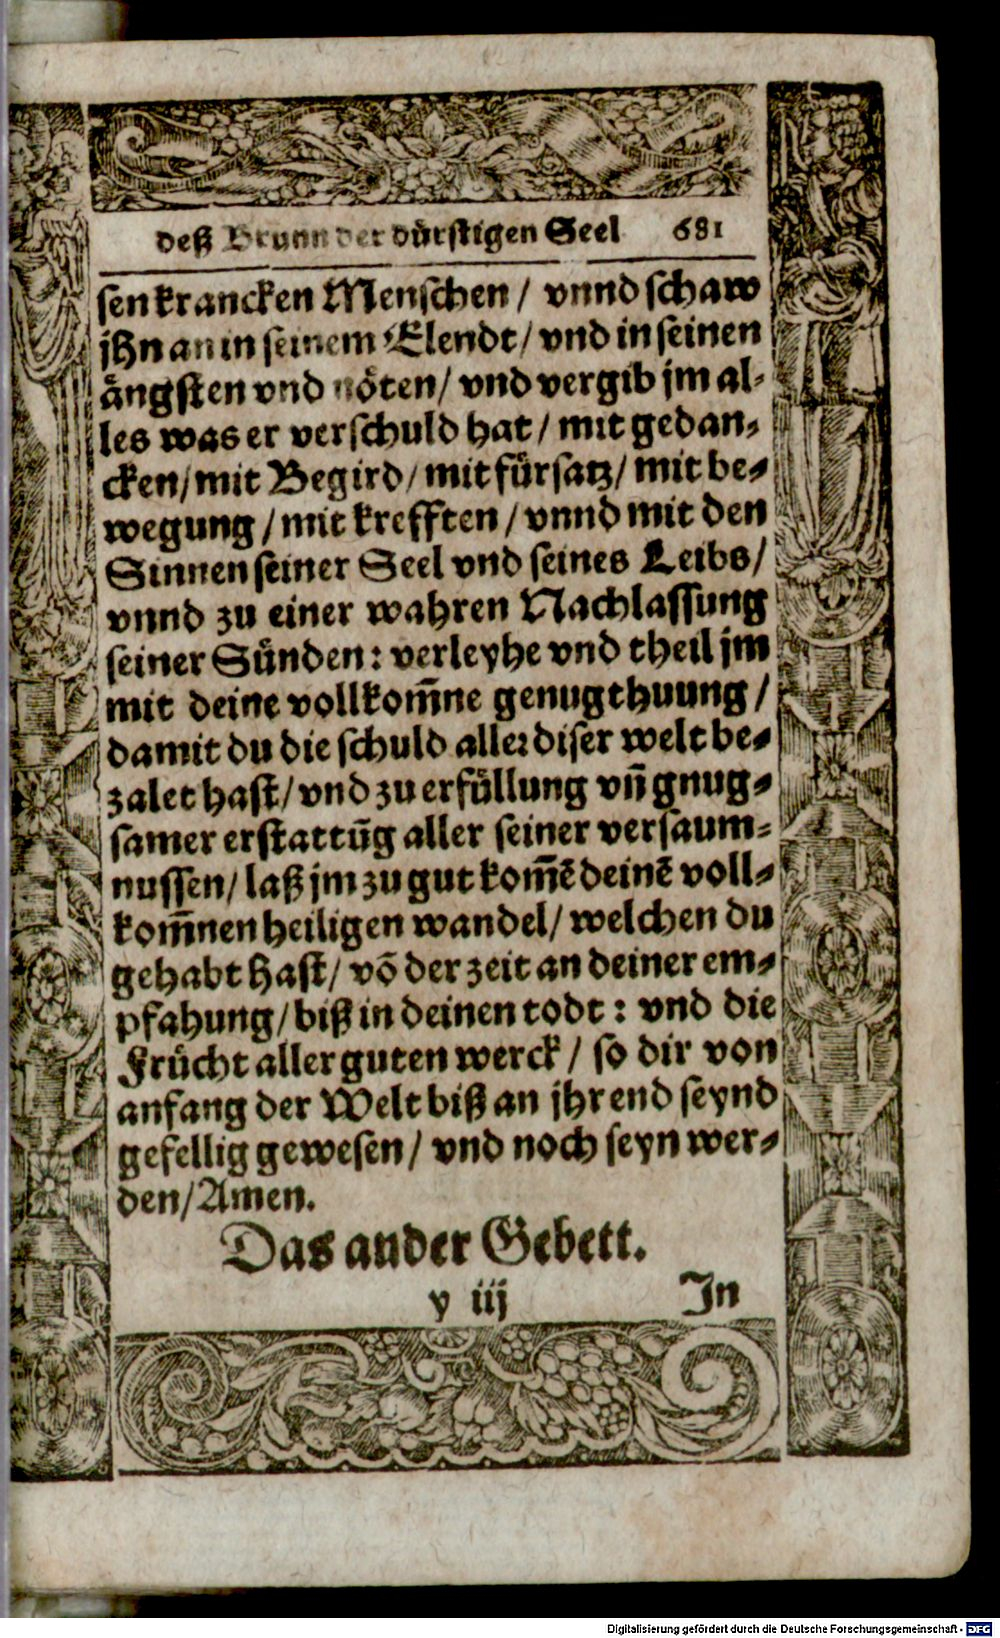 deß Brunn der dürstigen Seel 681
sen krancken Menschen / vnnd schaw
jhn an in seinem Elendt / vnd in seinen
ängsten vnd nöten / vnd vergib jm al-
les was er verschuld hat / mit gedan-
cken / mit Begird / mit fürsatz / mit be-
wegung / mit krefften / vnnd mit den
Sinnen seiner Seel vnd seines Leibs /
vnnd zu einer wahren Nachlassung
seiner Sünden: verleyhe vnd theil jm
mit deine vollkom̄ne genugthuung /
damit du die schuld aller diser welt be-
zalet hast / vnd zu erfüllung vn̄ gnug-
samer erstattūg aller seiner versaum-
nussen / laß jm zu gut kom̄ē deinē voll-
kom̄nen heiligen wandel / welchen du
gehabt hast / vō der zeit an deiner em-
pfahung / biß in deinen todt: vnd die
Frücht aller guten werck / so dir von
anfang der Welt biß an jhr end seynd
gefellig gewesen / vnd noch seyn wer-
den / Amen.
Das ander Gebett.
y iij In
Digitalisierung gefördert durch die Deutsche Forschungsgemeinschaft - DFG